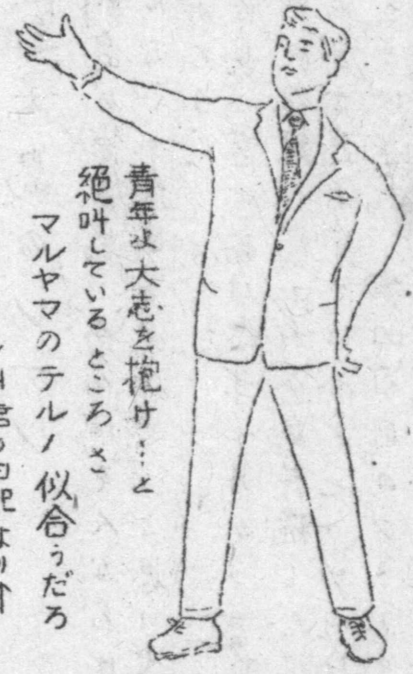 青年よ大志を抱け…と
絶叫しているところさ
マルヤマのテル!似合うだろ
君の日記より